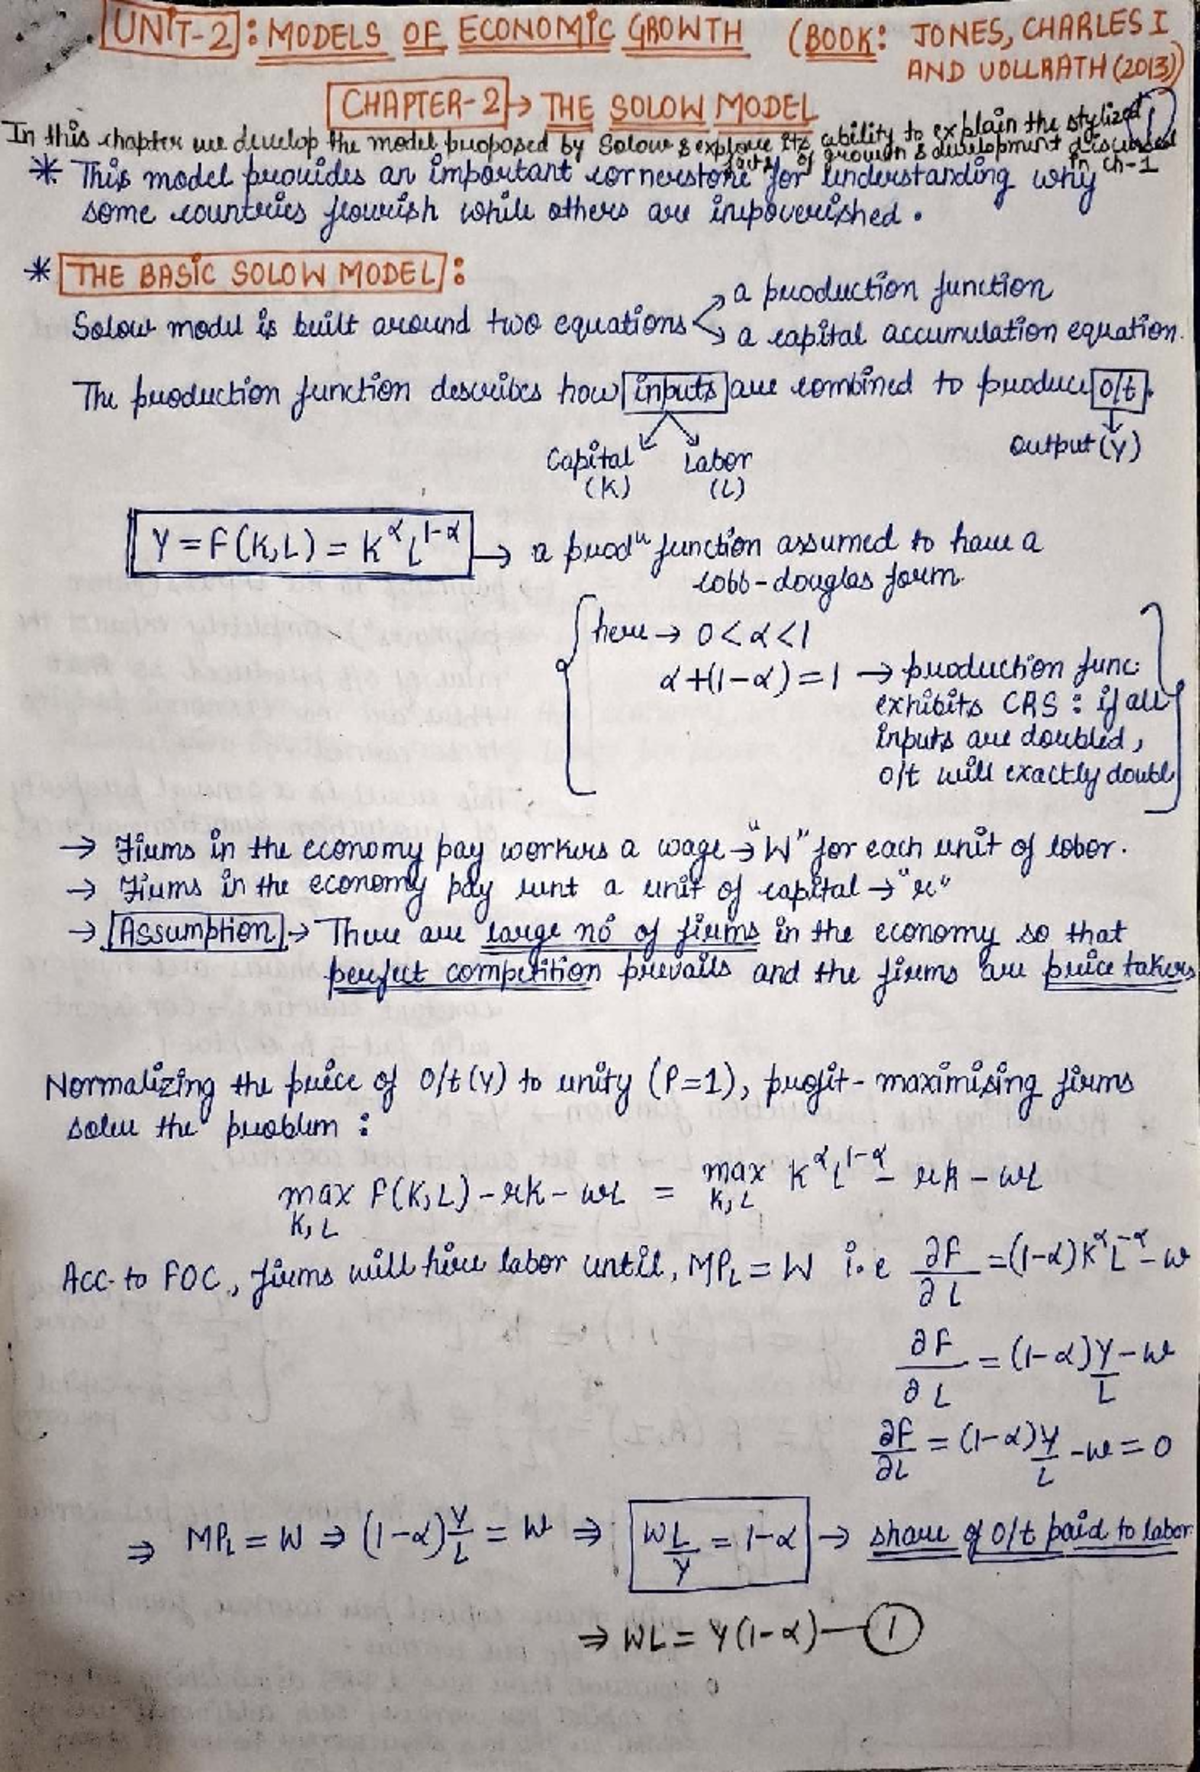 UNIT-2: MODELS OF ECONOMIC GROWTH (BOOK: JONES, CHARLES I
AND VOLLRATH (2013))
CHAPTER-2 → THE SOLOW MODEL
1
In this chapter we develop the model proposed by Solow & explore its ability to explain the stylized
facts of growth & development discussed
in ch-1
* This model provides an important cornerstone for understanding why
some countries flourish while others are impoverished.
* THE BASIC SOLOW MODEL:
Solow model is built around two equations → a production function
→ a capital accumulation equation.
The production function describes how inputs are combined to produce o/t.
Capital (K) Labor (L) output (Y)
Y = F(K,L) = K^α L^1-α → a prodⁿ function assumed to have a
cobb-douglas form
here → 0 < α < 1
α + (1-α) = 1 → production func.
exhibits CRS: if all
inputs are doubled,
o/t will exactly doubl
→ Firms in the economy pay workers a wage → "W" for each unit of labor.
→ Firms in the economy pay rent a unit of capital → "r"
→ Assumption → There are large no of firms in the economy so that
perfect competition prevails and the firms are price takers
Normalizing the price of o/t (Y) to unity (P=1), profit-maximising firms
solve the problem:
max F(K,L) - rK - wL = max K^α L^1-α - rk - wL
K,L K,L
Acc. to FOC, firms will hire labor until, MP_L = W i.e ∂F/∂L = (1-α)K^α L^-α - w
∂F/∂L = (1-α)Y/L - w
∂F/∂L = (1-α)Y/L - w = 0
⇒ MP_L = W ⇒ (1-α)Y/L = W ⇒ WL/Y = 1-α → share of o/t paid to labor
⇒ WL = Y(1-α) — 1